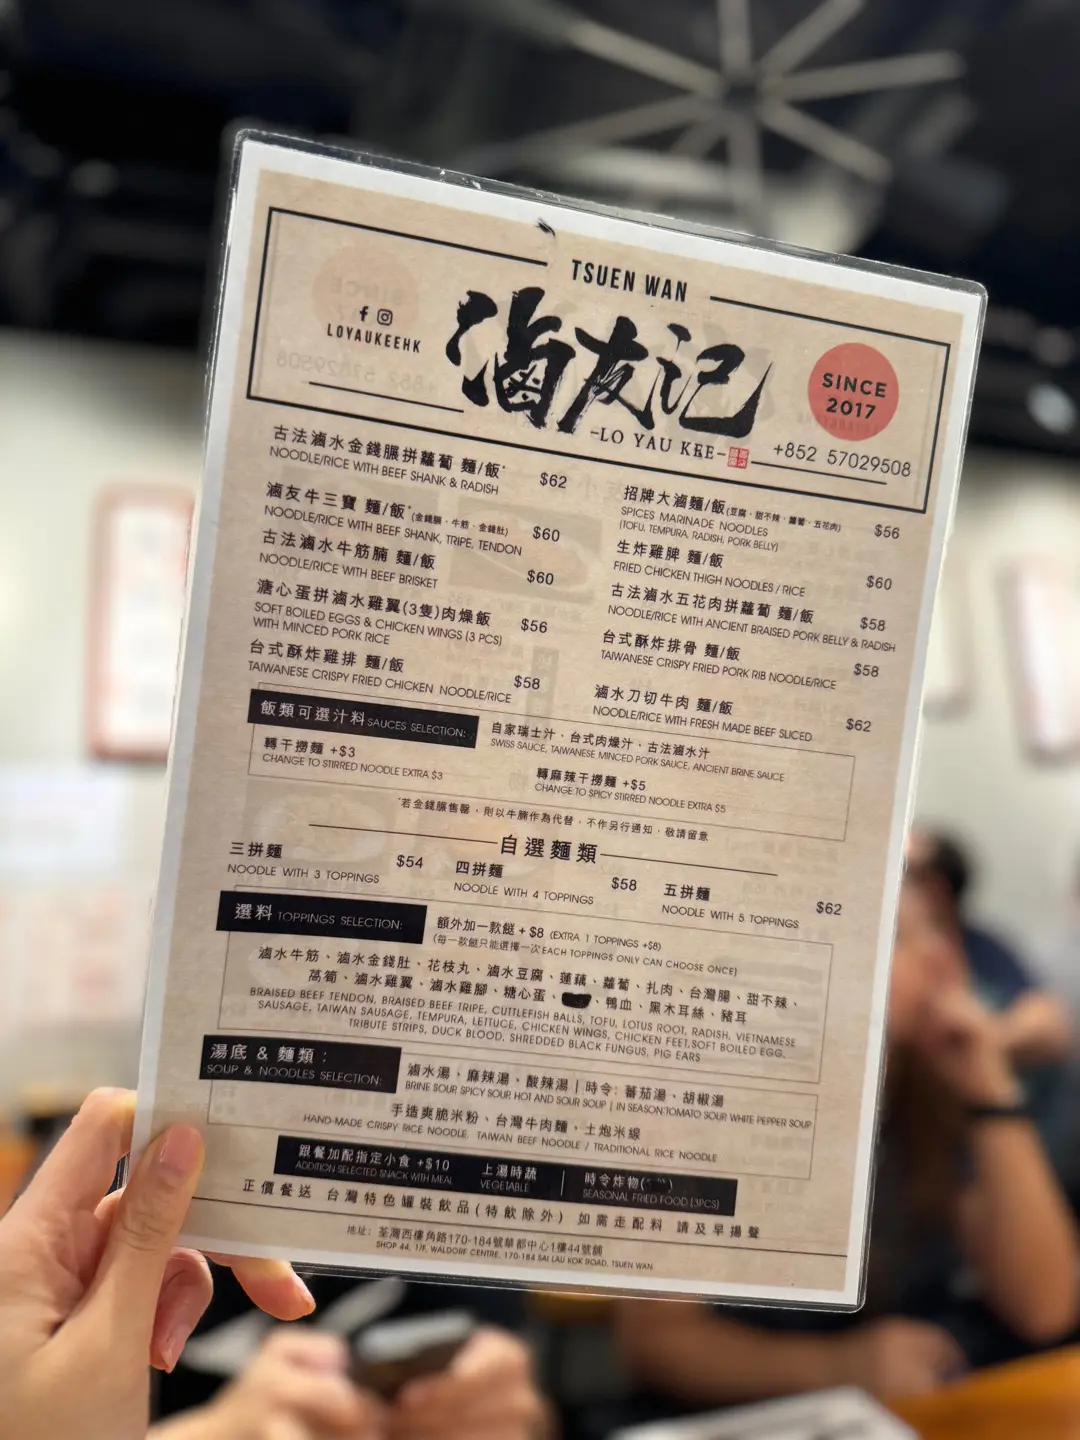 TSUEN WAN
LOYAUKEEHK
滷友記
-LO YAU KEE-
SINCE
2017
+852 57029508
古法滷水金錢𦟌拼蘿蔔 麵/飯* $62
NOODLE/RICE WITH BEEF SHANK & RADISH
滷友牛三寶 麵/飯*(金錢𦟌・牛筋・金錢肚) $60
NOODLE/RICE WITH BEEF SHANK, TRIPE, TENDON
古法滷水牛筋腩 麵/飯 $60
NOODLE/RICE WITH BEEF BRISKET
溏心蛋拼滷水雞翼(3隻)肉燥飯 $56
SOFT BOILED EGGS & CHICKEN WINGS (3 PCS)
WITH MINCED PORK RICE
台式酥炸雞排 麵/飯 $58
TAIWANESE CRISPY FRIED CHICKEN NOODLE/RICE
招牌大滷麵/飯(豆腐・甜不辣・蘿蔔・五花肉) $56
SPICES MARINADE NOODLES
(TOFU, TEMPURA, RADISH, PORK BELLY)
生炸雞脾 麵/飯 $60
FRIED CHICKEN THIGH NOODLES / RICE
古法滷水五花肉拼蘿蔔 麵/飯 $58
NOODLE/RICE WITH ANCIENT BRAISED PORK BELLY & RADISH
台式酥炸排骨 麵/飯 $58
TAIWANESE CRISPY FRIED PORK RIB NOODLE/RICE
滷水刀切牛肉 麵/飯 $62
NOODLE/RICE WITH FRESH MADE BEEF SLICED
飯類可選汁料 SAUCES SELECTION:
自家瑞士汁・台式肉燥汁・古法滷水汁
SWISS SAUCE, TAIWANESE MINCED PORK SAUCE, ANCIENT BRINE SAUCE
轉干撈麵 +$3
CHANGE TO STIRRED NOODLE EXTRA $3
轉麻辣干撈麵 +$5
CHANGE TO SPICY STIRRED NOODLE EXTRA $5
*若金錢𦟌售罄，則以牛腩作為代替，不作另行通知，敬請留意
自選麵類
三拼麵 $54
NOODLE WITH 3 TOPPINGS
四拼麵 $58
NOODLE WITH 4 TOPPINGS
五拼麵 $62
NOODLE WITH 5 TOPPINGS
選料 TOPPINGS SELECTION:
額外加一款餸 + $8 (EXTRA 1 TOPPINGS +$8)
(每一款餸只能選擇一次 EACH TOPPINGS ONLY CAN CHOOSE ONCE)
滷水牛筋、滷水金錢肚、花枝丸、滷水豆腐、蓮藕、蘿蔔、扎肉、台灣腸、甜不辣、
萵筍、滷水雞翼、滷水雞腳、糖心蛋、、鴨血、黑木耳絲、豬耳
BRAISED BEEF TENDON, BRAISED BEEF TRIPE, CUTTLEFISH BALLS, TOFU, LOTUS ROOT, RADISH, VIETNAMESE
SAUSAGE, TAIWAN SAUSAGE, TEMPURA, LETTUCE, CHICKEN WINGS, CHICKEN FEET,SOFT BOILED EGG,
TRIBUTE STRIPS, DUCK BLOOD, SHREDDED BLACK FUNGUS, PIG EARS
湯底 & 麵類：
SOUP & NOODLES SELECTION:
滷水湯、麻辣湯、酸辣湯 | 時令: 蕃茄湯、胡椒湯
BRINE SOUP SPICY SOUR HOT AND SOUR SOUP | IN SEASON:TOMATO SOUP WHITE PEPPER SOUP
手造爽脆米粉、台灣牛肉麵、土炮米線
HAND-MADE CRISPY RICE NOODLE, TAIWAN BEEF NOODLE / TRADITIONAL RICE NOODLE
跟餐加配指定小食 +$10
ADDITION SELECTED SNACK WITH MEAL
上湯時蔬
VEGETABLE
時令炸物
SEASONAL FRIED FOOD (3PCS)
正價餐送 台灣特色罐裝飲品(特飲除外) 如需走配料 請及早揚聲
地址：荃灣西樓角路170-184號華都中心1樓44號舖
SHOP 44, 1/F, WALDORF CENTRE, 170-184 SAI LAU KOK ROAD, TSUEN WAN